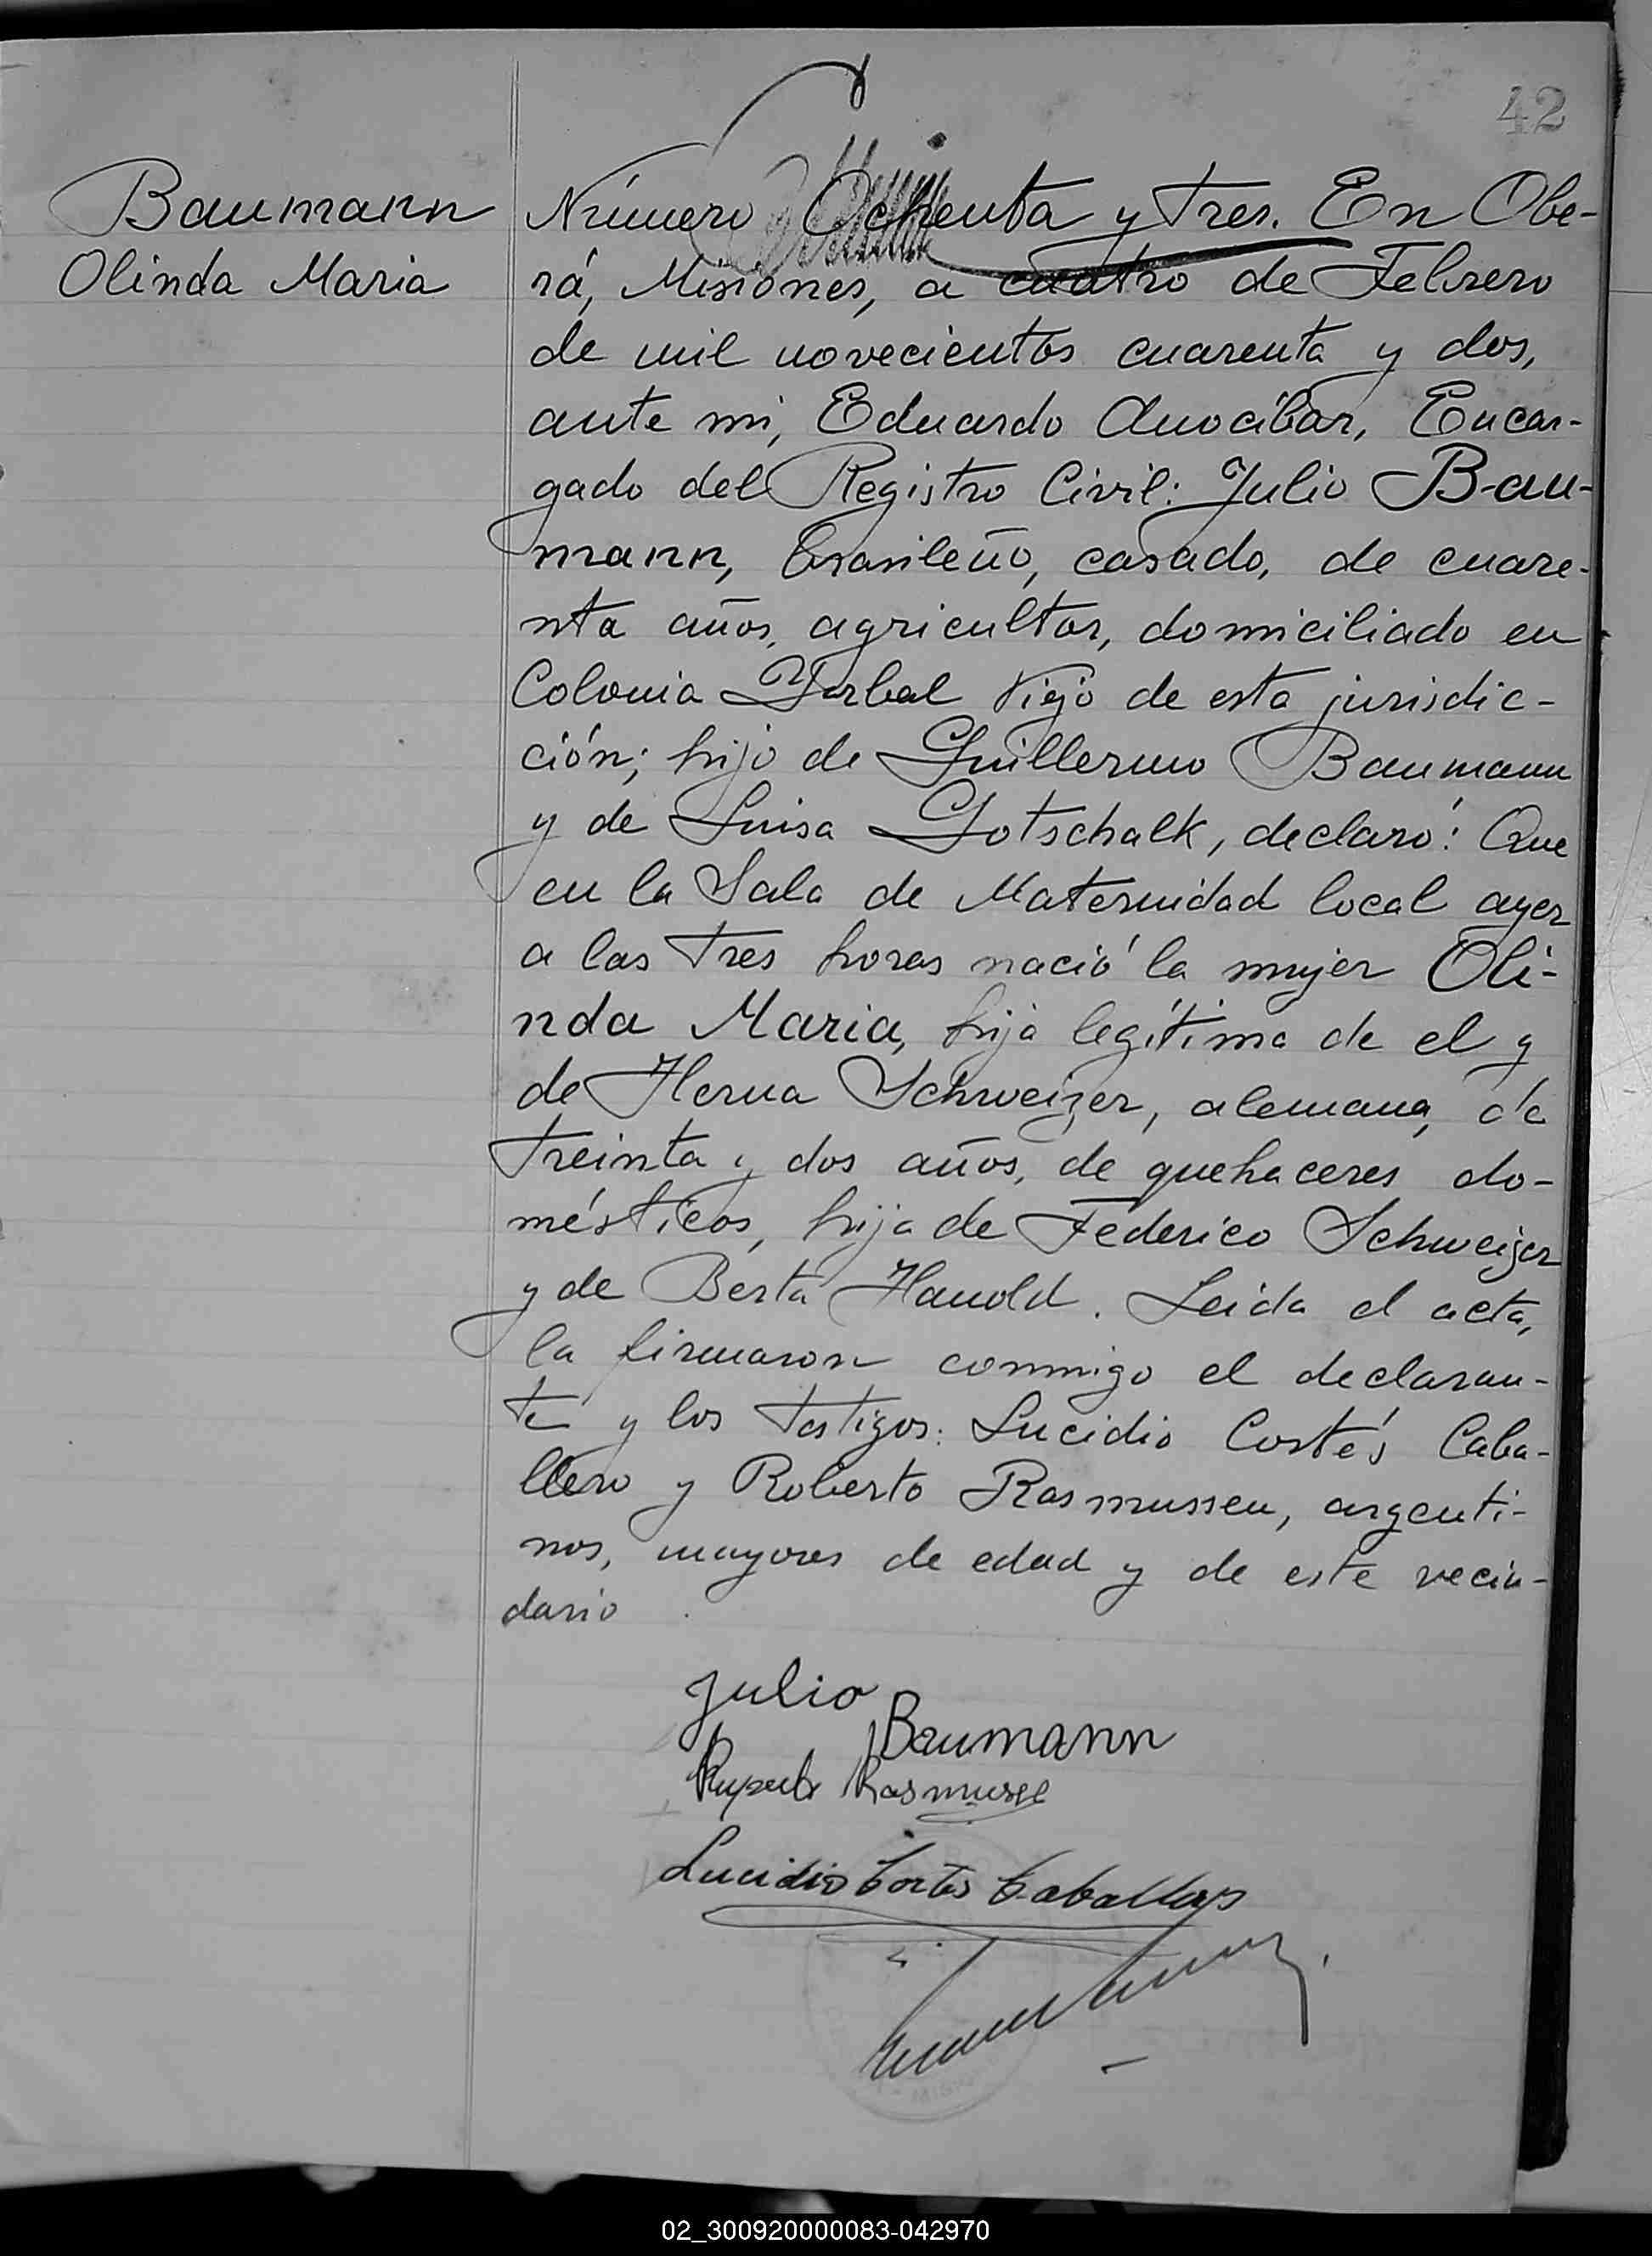 42
Baumann
Olinda Maria
Número Ochenta y tres. En Obe-
rá, Misiones, a cuatro de Febrero
de mil novecientos cuarenta y dos,
ante mi, Eduardo Anocibar, Encar-
gado del Registro Civil: Julio Bau-
mann, brasileño, casado, de cuare-
nta años, agricultor, domiciliado en
Colonia Yerbal Viejo de esta jurisdic-
ción; hijo de Guillermo Baumann
y de Luisa Gotschalk, declaró: Que
en la Sala de Maternidad local ayer
a las tres horas nació la mujer Oli-
nda Maria, hija legítima de el y
de Herna Schweizer, alemana, de
treinta y dos años, de quehaceres do-
mésticos, hija de Federico Schweizer
y de Berta Hanold. Leida el acta,
la firmaron conmigo el declaran-
te y los testigos: Lucidio Cortés Caba-
llero y Roberto Rasmussen, argenti-
nos, mayores de edad y de este vecin-
dario
Julio
Baumann
Rasmusse
Lucidio Cortes Caballero
02_300920000083-042970